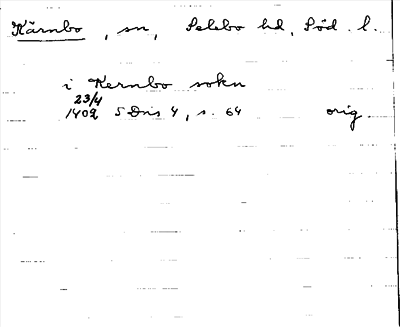 Kärnbo, sn, Selebo hd, Söd. l.
i Kernbo sokn
23/4
1402 SDns 4, s. 64 orig.